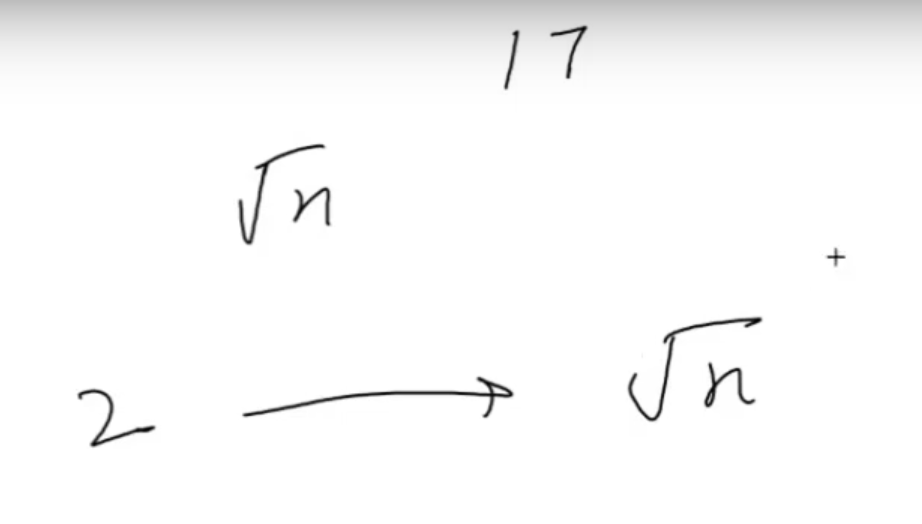 17
√n
2 → √n